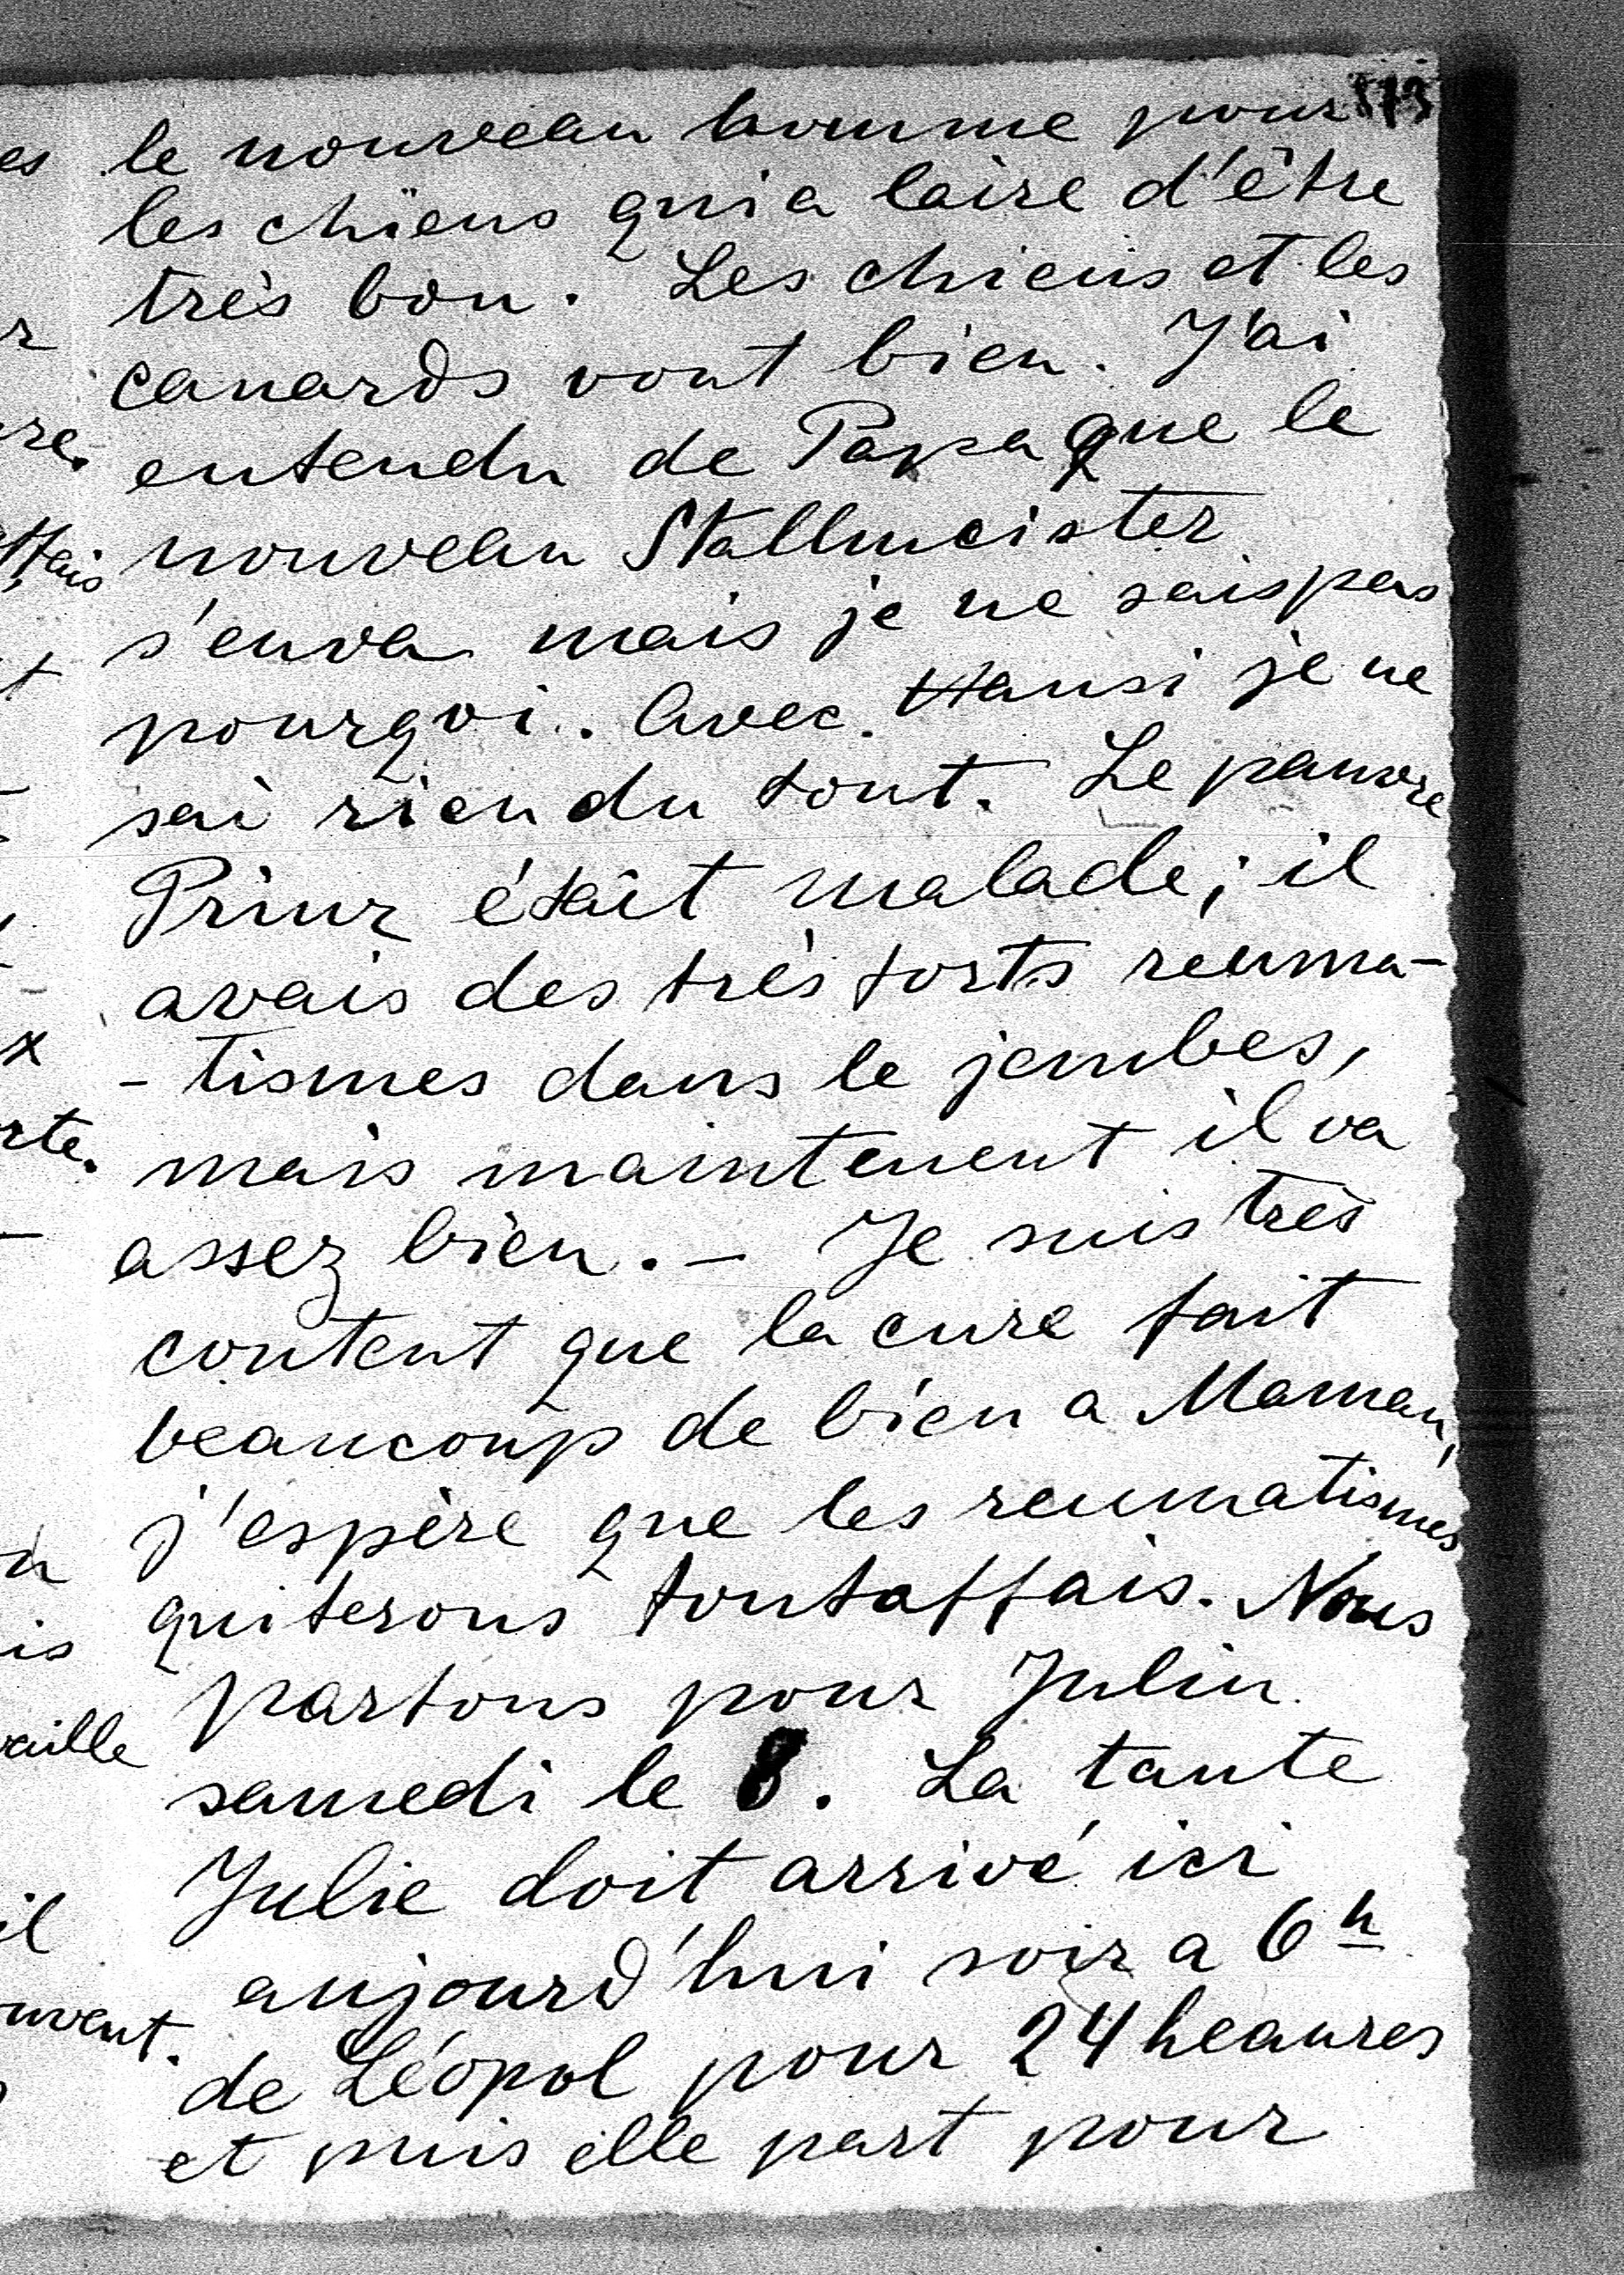 le nouveau homme pour
les chiens qui a laire d'être
très bon. Les chiens et les
canards vont bien. J'ai
entendu de Papa que le
nouveau Stallmeister
s'enva mais je ne sais pas
pourqoi. Avec Hansi je ne
sai rien du tout. Le pauvre
Prinz était malade; il
avais des très forts reuma-
-tismes dans le jambes,
mais maintenent il va
assez bien. – Je suis très
content que la cure fait
beaucoup de bien a Maman,
j'espère que les reumatismes
quiterons toutaffais. Nous
partons pour Julin
samedi le 8. La tante
Julie doit arrivé ici
aujourd'hui soir a 6h
de Léopol pour 24 heaures
et puis elle part pour